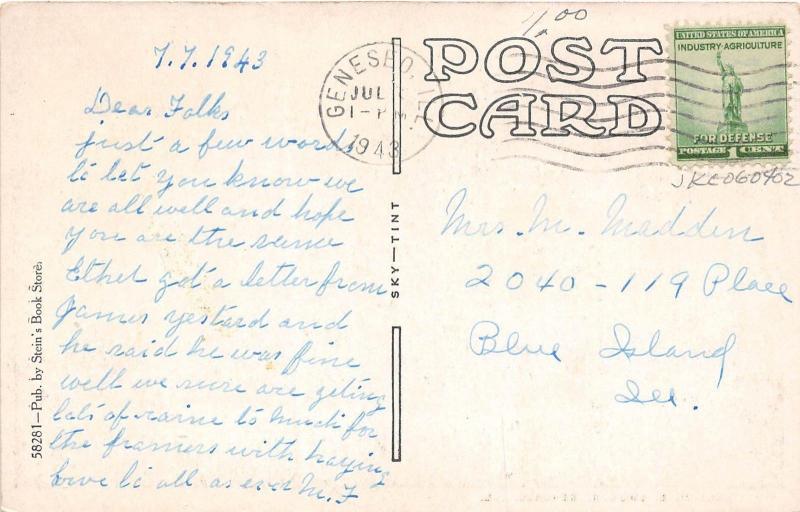 1.00
POST
CARD
GENESEO, ILL.
JUL
1-PM
1943
UNITED STATES OF AMERICA
INDUSTRY·AGRICULTURE
FOR DEFENSE
POSTAGE 1 CENT
JKC060402
7.7.1943
Dear Folks
just a few words
to let you know we
are all well and hope
you are the same
Ethel got a letter from
James yestard and
he said he was fine
well we sure are geting
lots of raine to much for
the framers with haying
Love to all as ever M. F
SKY-TINT
58281—Pub. by Stein's Book Store.
Mrs. M. Madden
2040-119 Place
Blue Island
Ill.